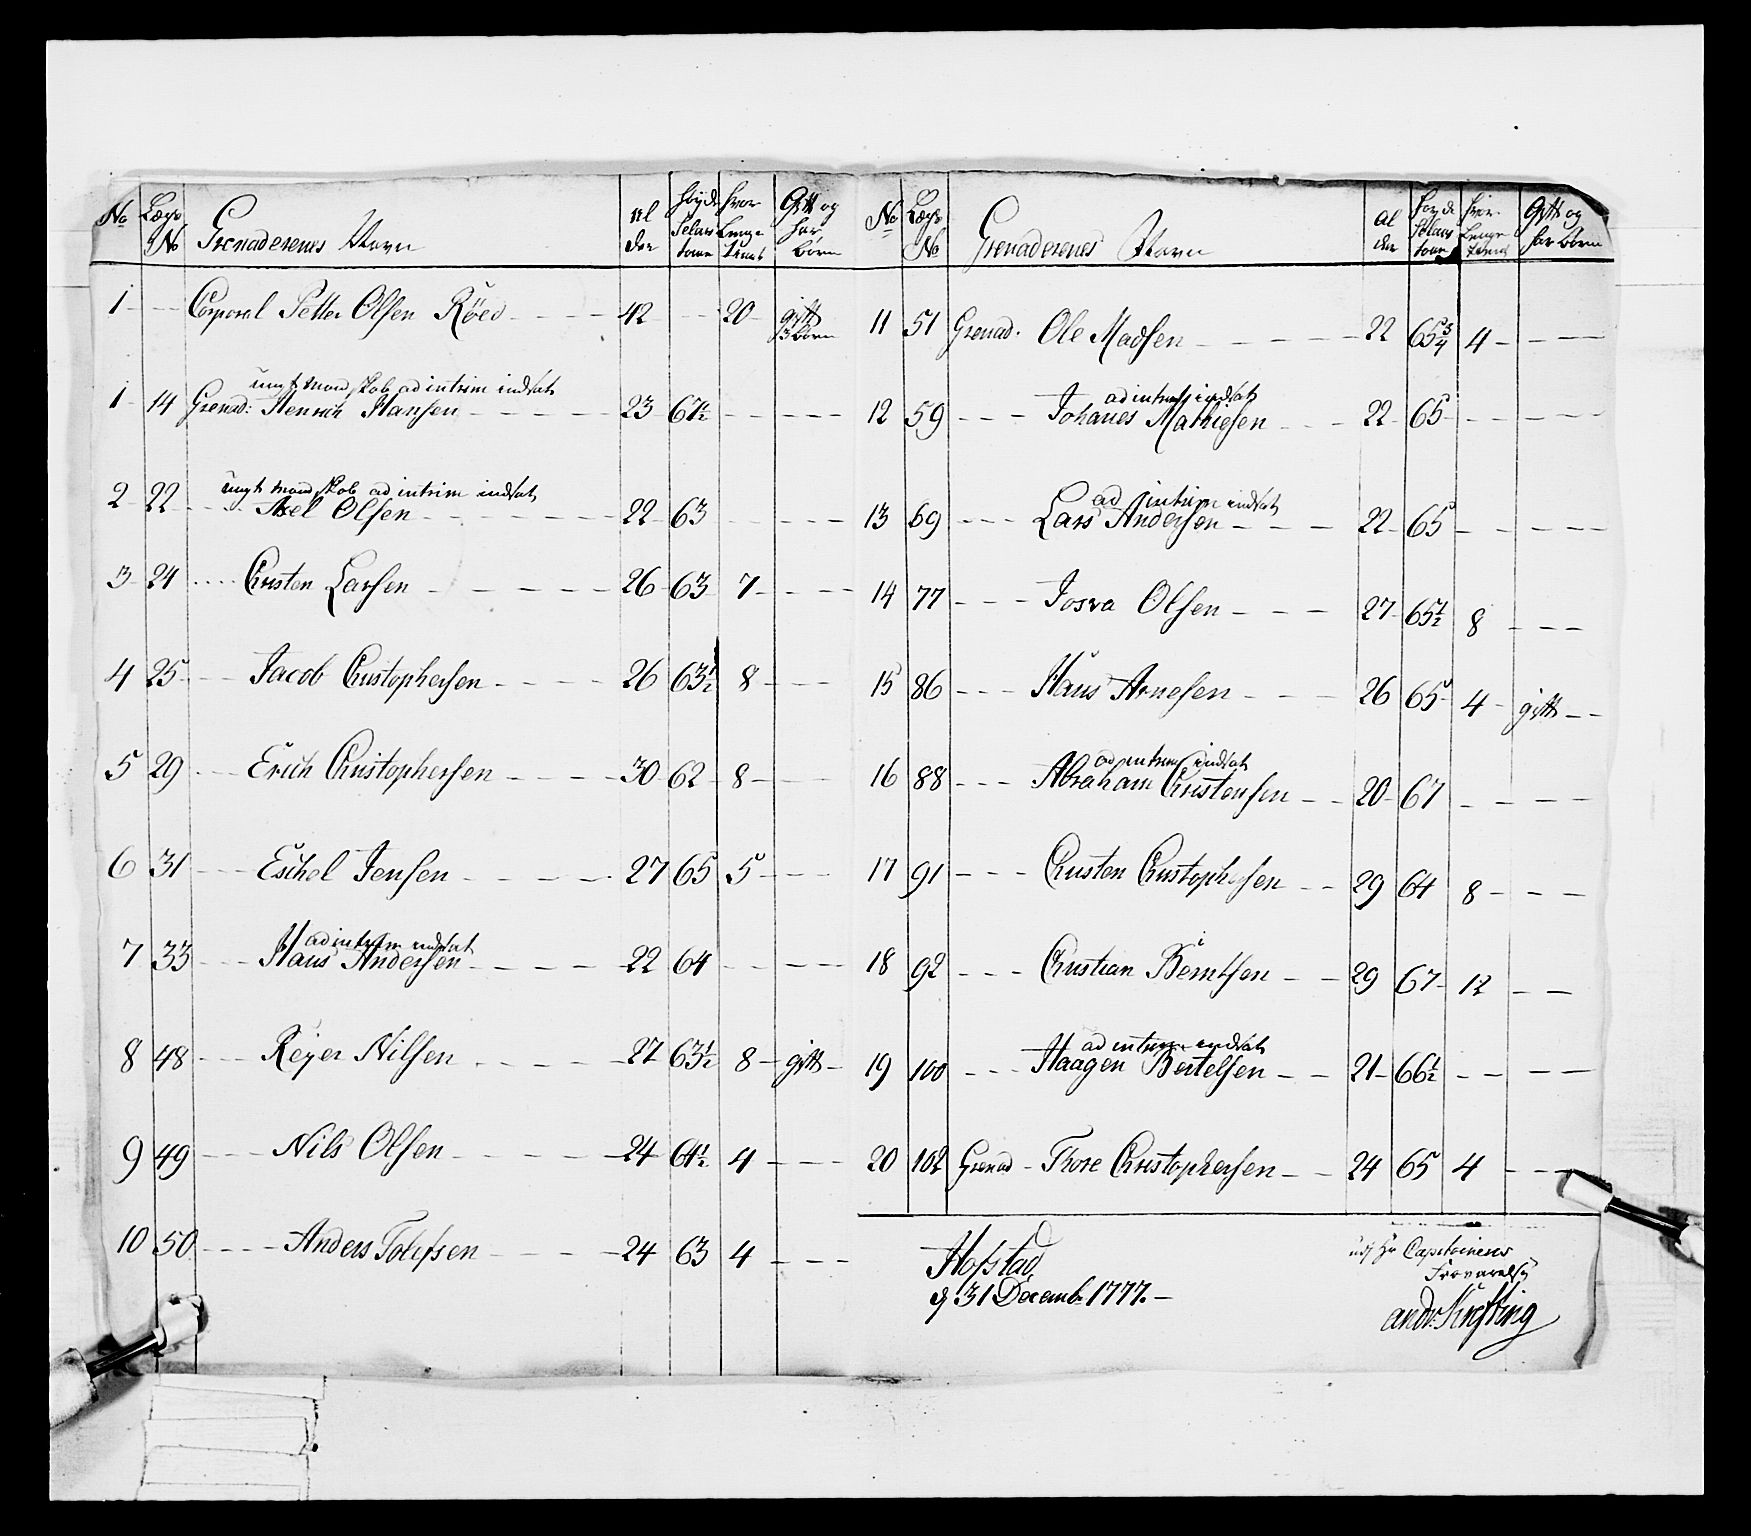 No Lægs No Grenaderenes Navn Al der Høyde Selans tomme hvor Længe tient Gift og har Børn
1 - Corporal Petter Olsen Röed 42 - 20 gift 3 Børn
ungt Mandskab ad intrim indsat
1 14 Grenad: Henrich Hansen 23 67½ - -
ungt Mandskab ad intrim indsat
2 22 Axel Olsen 22 63 - -
3 24 Christen Larsen 26 63 7 -
4 25 Jacob Christophersen 26 63½ 8 -
5 29 Erich Christophersen 30 62 8 -
6 31 Eschel Jensen 27 65 5 -
ad intrim indsat
7 33 Hans Andersen 22 64 - -
8 48 Reyer Nilsen 27 63½ 8 gift
9 49 Nils Olsen 24 64½ 4 -
10 50 Anders Tolefsen 24 63 4 -
No Lægs No Grenaderenes Navn Al der Høyde Selans tomme hvor Længe tient Gift og har Børn
11 51 Grenad. Ole Madsen 22 65¾ 4 -
ad intrim indsat
12 59 Johanes Mathiesen 22 65 - -
ad intrim indsat
13 69 Lars Andersen 22 65 - -
14 77 Josva Olsen 27 65½ 8 -
15 86 Hans Arnesen 26 65 4 gift
ad intrim indsat
16 88 Abraham Christensen 20 67 - -
17 91 Christen Christophersen 29 64 8 -
18 92 Christian Berntsen 29 67 12 -
ad intrim indsat
19 100 Haagen Bertelsen 21 66½ - -
20 102 Grenad Thore Christophersen 24 65 4 -
Hofstad
d 31 Decembr 1777.
udj Hr Capitainens
Fraværelse
andr: Krefting